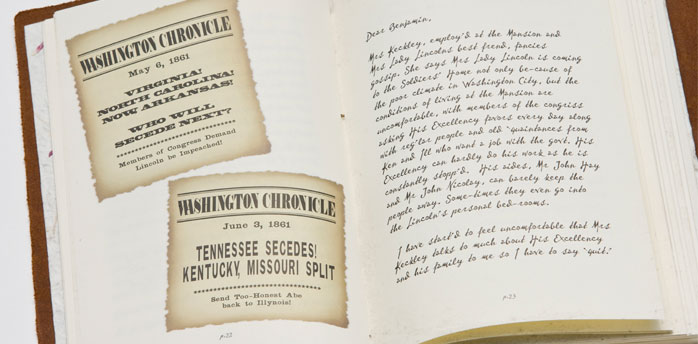 WASHINGTON CHRONICLE
May 6, 1861
VIRGINIA!
NORTH CAROLINA!
NOW ARKANSAS!
WHO WILL
SECEDE NEXT?
Members of Congress Demand
Lincoln be Impeached!
WASHINGTON CHRONICLE
June 3, 1861
TENNESSEE SECEDES!
KENTUCKY, MISSOURI SPLIT
Send Too-Honest Abe
back to Illynois!
p.22
Dear Benjamin,
Mrs Keckley, employ'd at the Mansion and
Mrs Lady Lincolns best freind, fancies
gossip. She says Mrs Lady Lincoln is coming
to the Soldiers' Home not only be-cause of
the poor climate in Washington City, but the
conditions of living at the Mansion are
uncomfortable, with members of the congriss
asking His Excellency favors every day along
with reg'lar people and old "quaintances from
Ken and Ill who want a job with the govt. His
Excellency can hardly do his work as he is
constantly stopp'd. His aides, Mr John Hay
and Mr John Nicolay, can barely keep the
people away. Some-times they even go into
the Lincoln's personal bed-rooms.
I have start'd to feel uncomfortable that Mrs
Keckley talks to much about His Excellency
and his family to me so I have to say "quit."
p.23